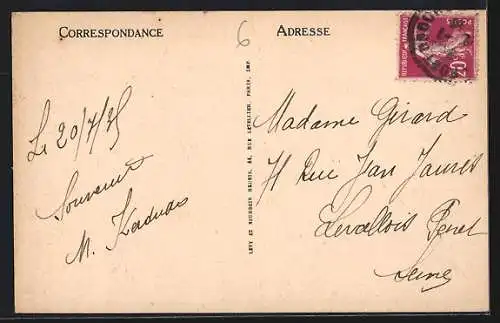 CORRESPONDANCE
ADRESSE
6
POSTES
20
RÉPUBLIQUE FRANÇAISE
Le 20/7/25
Souvenir
M.
LEVY ET NEURDEIN RÉUNIS, 44, RUE LETELLIER, PARIS, IMP.
Madame Girard
71 Rue Jean Jaures
Levallois Perret
Seine